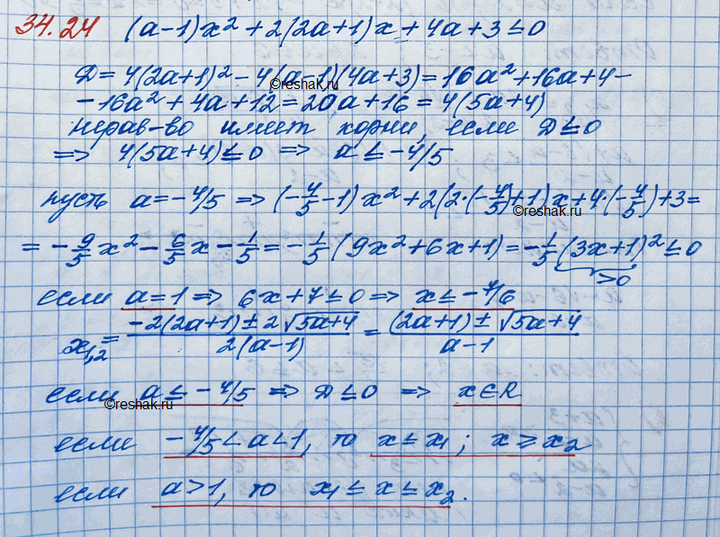 34.24 (a-1)x² + 2(2a+1)x + 4a + 3 ≤ 0
D = 4(2a+1)² - 4(a-1)(4a+3) = 16a² + 16a + 4 -
- 16a² + 4a + 12 = 20a + 16 = 4(5a+4)
нерав-во имеет корни, если D ≤ 0
=> 4(5a+4) ≤ 0 => a ≤ -4/5
пусть a = -4/5 => (-4/5 - 1)x² + 2(2·(-4/5)+1)x + 4·(-4/5) + 3 =
= -9/5x² - 6/5x - 1/5 = -1/5(9x² + 6x + 1) = -1/5(3x+1)² ≤ 0
>0
если a = 1 => 6x + 7 ≤ 0 => x ≤ -7/6
x₁,₂ = -2(2a+1) ± 2√5a+4 / 2(a-1) = (2a+1) ± √5a+4 / a-1
если a ≤ -4/5 => D ≤ 0 => x ∈ R
если -4/5 < a < 1, то x ≤ x₁; x ≥ x₂
если a > 1, то x₁ ≤ x ≤ x₂.
©reshak.ru
©reshak.ru
©reshak.ru